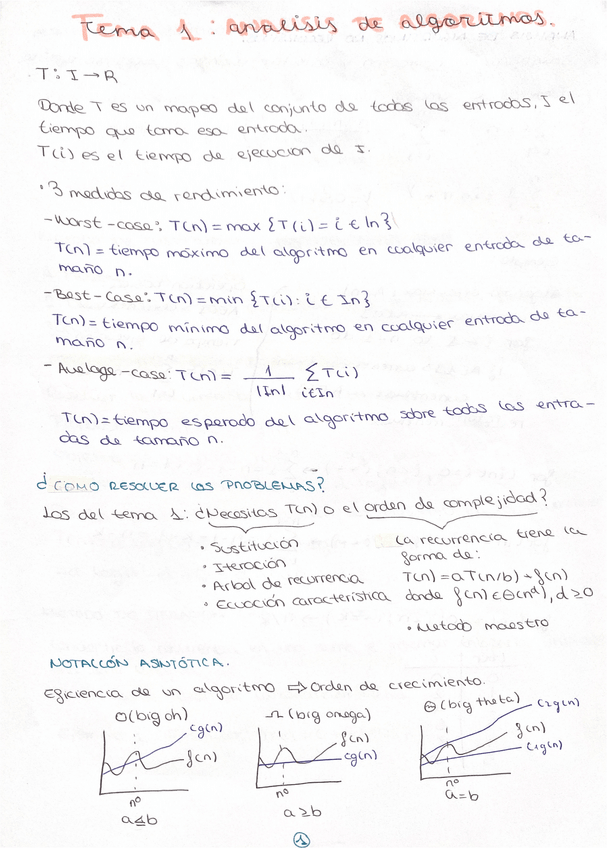 Tema 1: analisis de algoritmos.
T: I → R
Donde T es un mapeo del conjunto de todas las entradas, I el
tiempo que toma esa entrada.
T(i) es el tiempo de ejecucion de I.
· 3 medidas de rendimiento:
- Worst-case: T(n) = max {T(i) = i ∈ In}
T(n) = tiempo máximo del algoritmo en cualquier entrada de ta-
maño n.
- Best-Case: T(n) = min {T(i): i ∈ In}
T(n) = tiempo mínimo del algoritmo en cualquier entrada de ta-
maño n.
- Avelage-case: T(n) = 1/|In| ∑ T(i) i∈In
T(n) = tiempo esperado del algoritmo sobre todas las entra-
das de tamaño n.
¿COMO RESOLVER LOS PROBLEMAS?
Los del tema 1: ¿Necesitas T(n) o el orden de complejidad?
· Sustitución
· Iteración
· Arbol de recurrencia
· Ecuación caracteristica
La recurrencia tiene la
forma de:
T(n) = aT(n/b) + f(n)
donde f(n) ∈ Θ(n^d), d ≥ 0
· Metodo maestro
NOTACCÓN ASINTÓTICA.
Eficiencia de un algoritmo ⇒ Orden de crecimiento.
O (big oh)
cg(n)
f(n)
nº
a ≤ b
Ω (big omega)
f(n)
cg(n)
nº
a ≥ b
Θ (big theta)
c2g(n)
f(n)
c1g(n)
nº
a = b
1